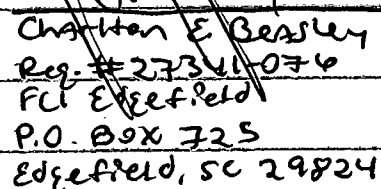 Charlton E Beasley
Reg. # 27341-076
FCI Edgefield
P.O. Box 725
Edgefield, SC 29824